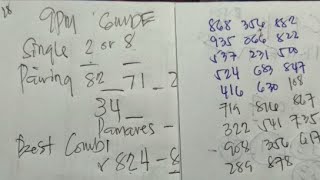 9PM GUIDE
Single 2 or 8
Pairing 82 _ 71 _ 2
34 _
Damares -
Best Combi
✓ 824 - 8
868 356 882
935 266 822
537 231 500
524 683 847
416 670 108
719 816 867
322 541 735
908 356 617
289 878